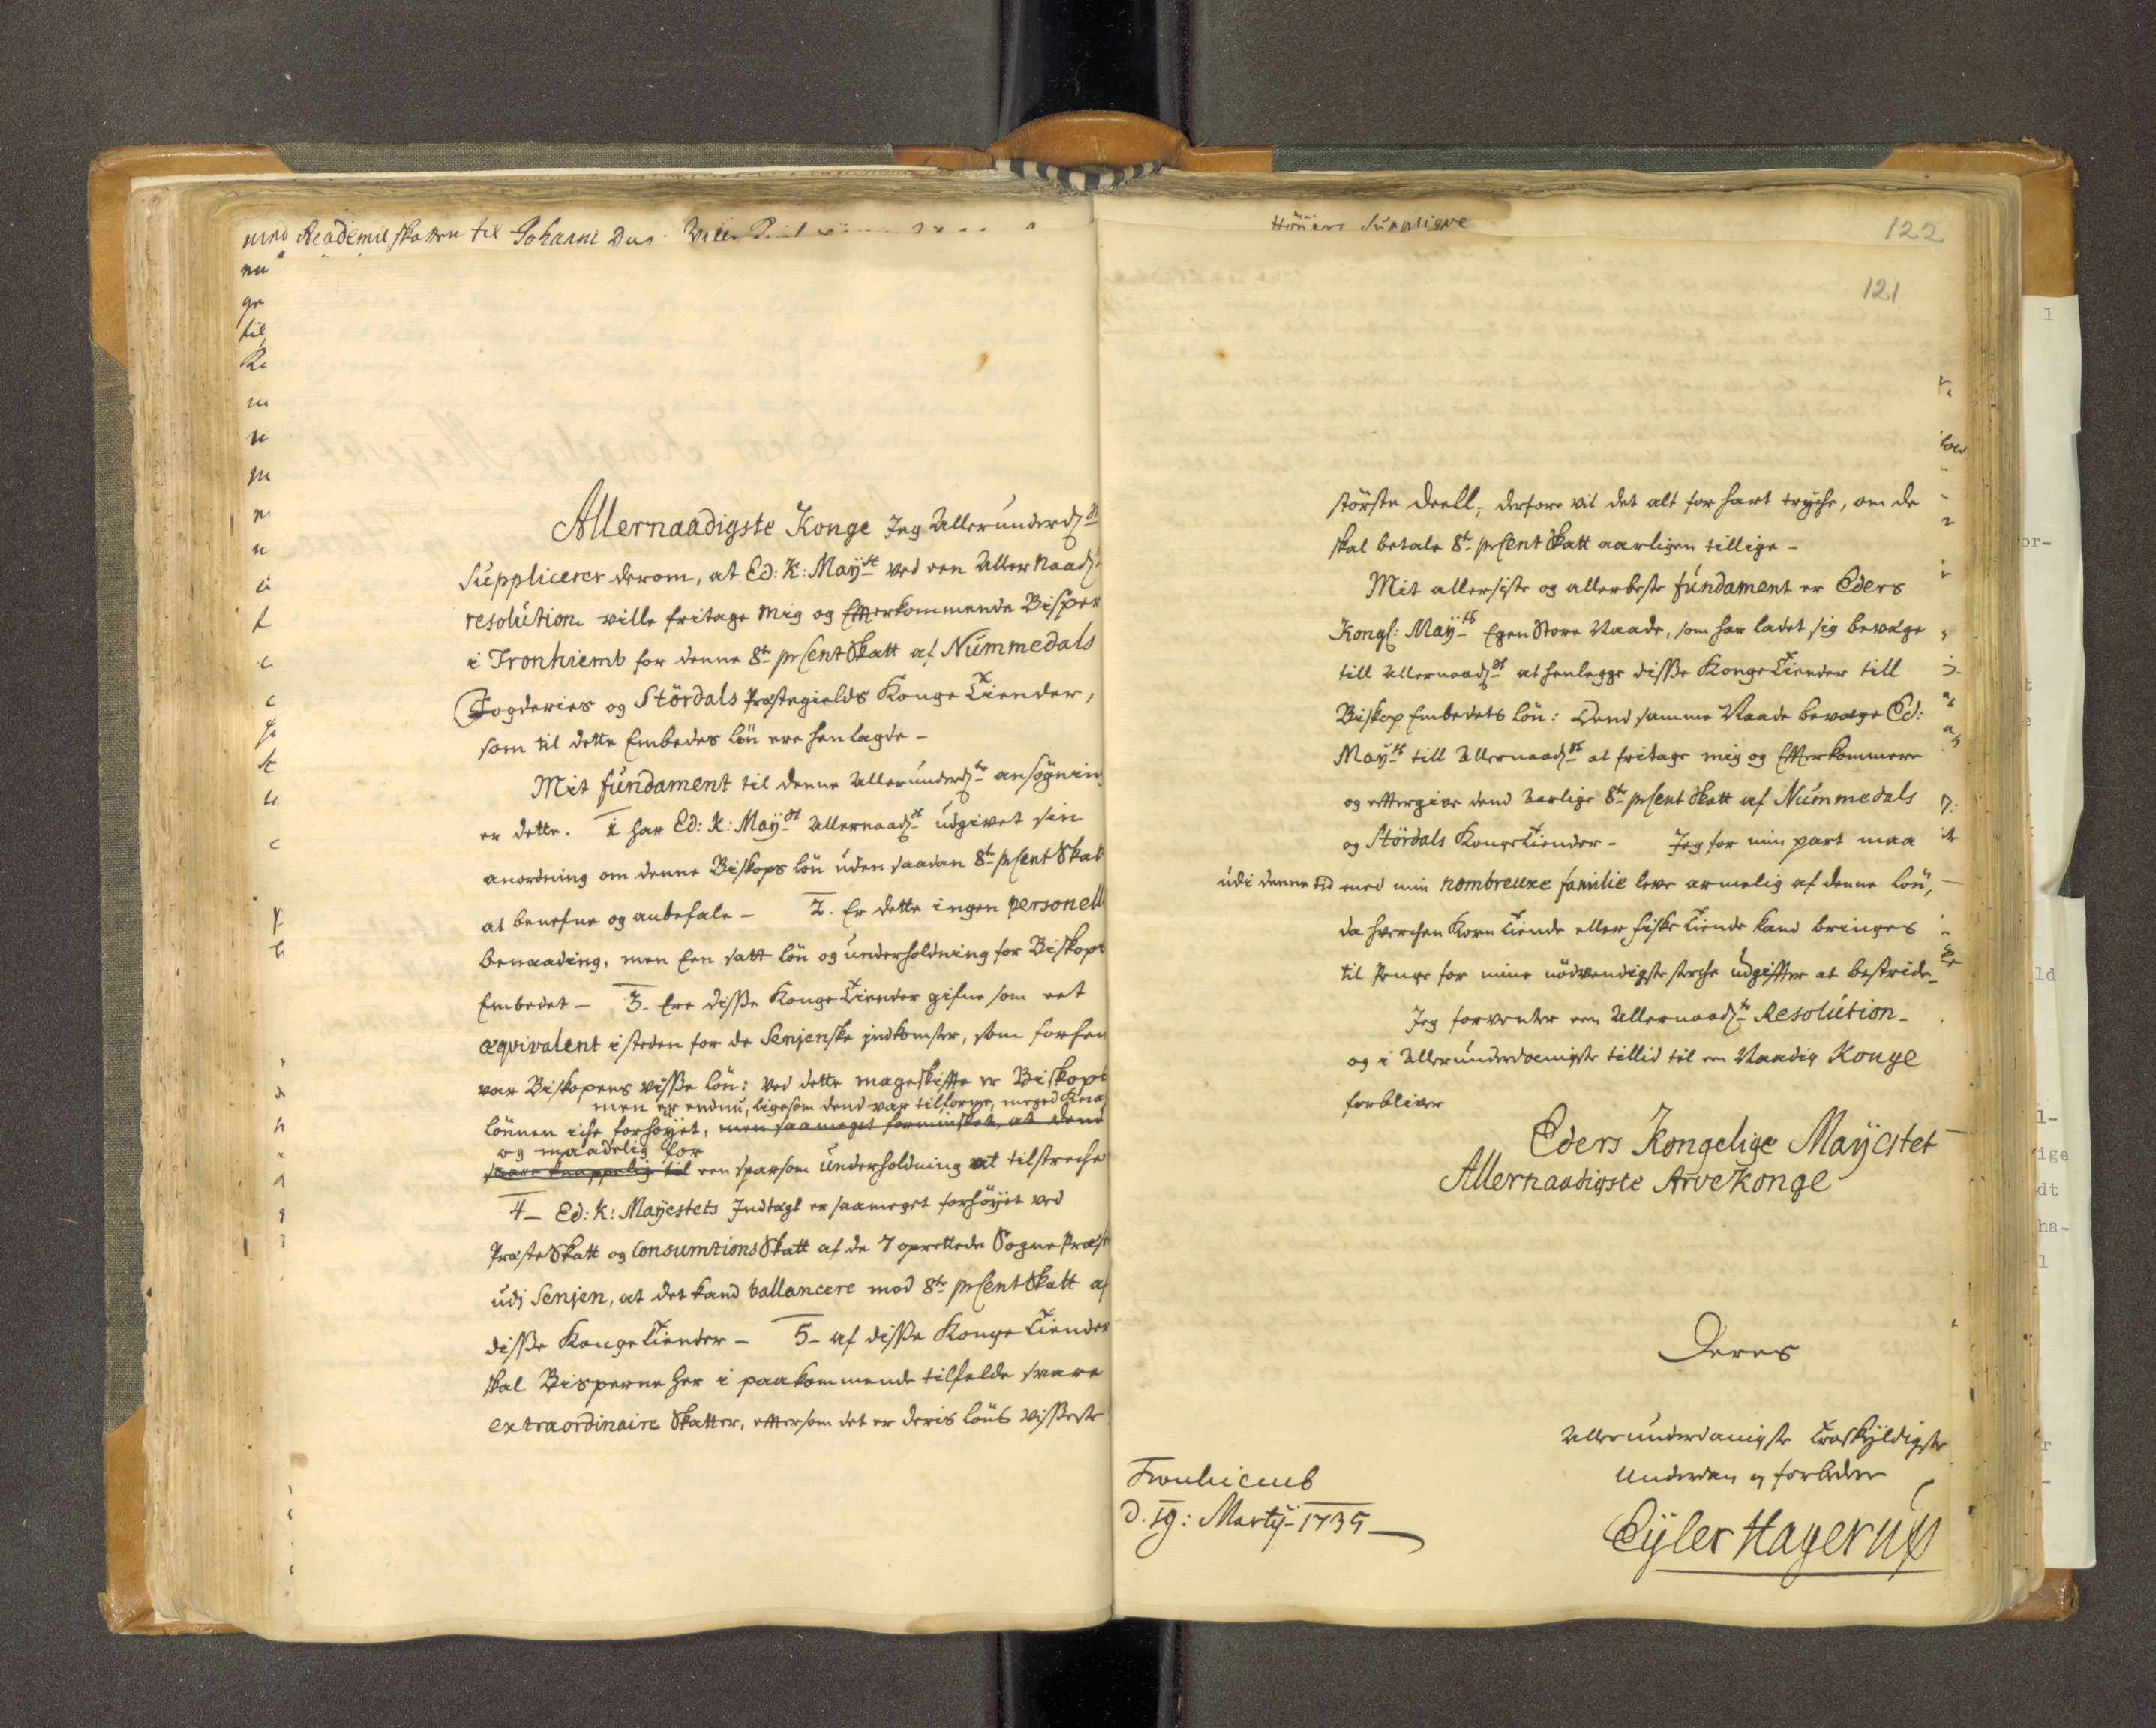 Academie skatten til Johanni
Allernaadigste Konge Jeg Allerunderdst
Supplicerer derom, at Ed: K: Mayst ved een Allernaad:
resolution ville fritage mig og Efterkommende Bisper
i Tronhiemb for denne 8te prCent Skatt af Nummedals
Fogderies og Stördals Præstegields Konge Tiender,
som til dette Embedes lön ere henlagde -
Mit fundament til denne Allerunderdste ansögning
er dette. 1 har Ed: K: Mayst Allernaadst udgivet sin
anordning om denne Biskops lön uden saadan 8te prCent Skat
at benefne og anbefale - 2. Er dette ingen personell
benaading, men Een satt lön og underholdning for Biskops
Embedet - 3. Ere disse Konge Tiender gifne som eet
æqvivalent isteden for de Senjenske indkomster, som forhen
var Biskopens visse lön: ved dette mageskifte er Biskops
men er endnu, ligesom dend var tilforne, meget Kna
lönnen iche forhöyet, men saa meget forminsket, at dend
og maadelig for
svare knappelig til een sparsom underholdning at tilstreche
4 - Ed: K: Mayestets Indtægt er saameget forhöyet ved
Præste Skatt og Consumtions Skatt af de 7 oprettede Sogne Præst
udj Senjen, at det kand ballancere mod 8te prCent Skatt af
disse Konge Tiender - 5 - af disse Konge Tiender
skal Bisperne her i paakommende tilfelde svare
extraordinaire Skatter, eftersom det er deris löns visseste
Supplique
122
121
störste deell, derfore vil det alt for hart tryche, om de
skal betale 8te prCent Skatt aarligen tillige -
Mit allersiste og allerbeste fundament er Eders
Kongl: Mayts Egen Store Naade, som har ladet sig bevæge
till Allernaadst at henlegge disse Konge Tiender till
Biskop Embedets lön: Dend samme Naade bevæge Ed:
Mayts till Allernaadst at fritage mig og Efterkommere
og eftergive dend aarlige 8te prCent Skatt af Nummedals
og Stördals Konge Tiender - Jeg for min part maa
udi denne tid med min nombreuxe familie leve armelig af denne lön,
da hverchen Korn Tiende eller fiske Tiende kand bringes
til Penge for mine nödvendigste udgifter at bestride -
Jeg forventer een Allernaadste Resolution -
og i Allerunderdanigste tillid til en Naadig Konge
forbliver
Eders Kongelige Mayestet
Allernaadigste Arvekonge
Deres
Allerunderdanigste troskyldigste
Underdan og forbeder
Eyler Hagerup
Tronhiemb
d. 19: Marty - 1735